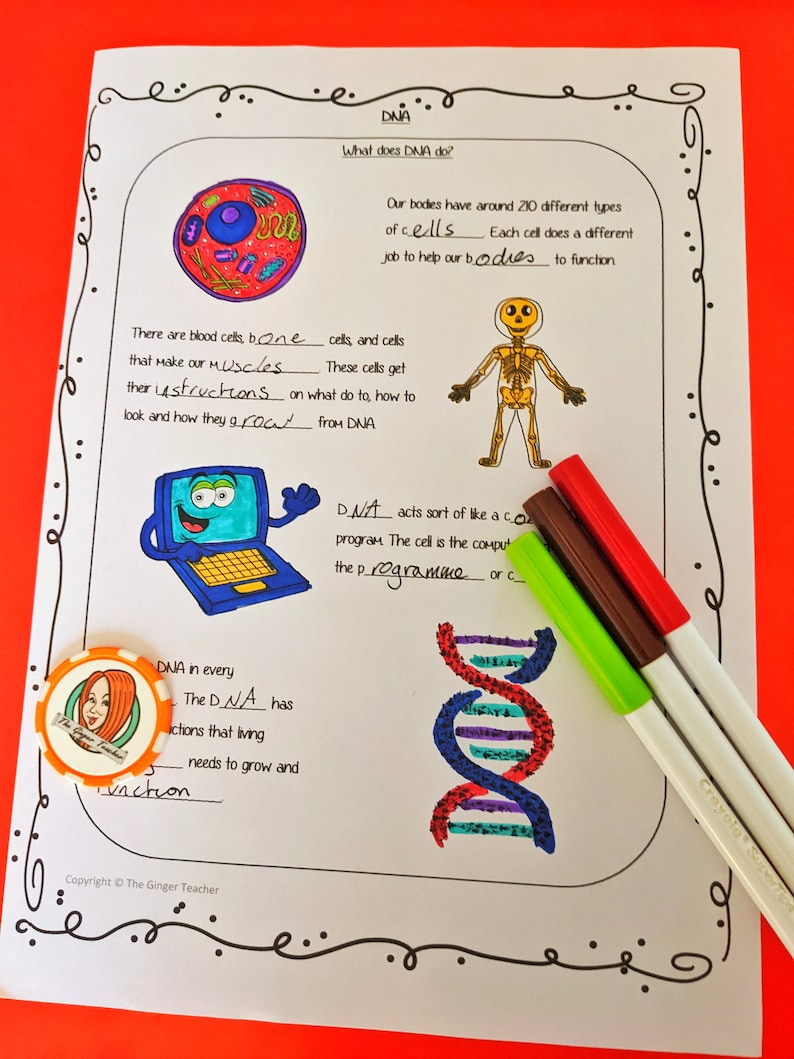 DNA
What does DNA do?
Our bodies have around 210 different types
of cells. Each cell does a different
job to help our bodies to function
There are blood cells, bone cells, and cells
that make our muscles. These cells get
their instructions on what do to, how to
look and how they grow from DNA
DNA acts sort of like a
program. The cell is the
the programme or
DNA in every
The DNA has
that living
needs to grow and
function
The Ginger Teacher
Copyright © The Ginger Teacher
Crayola